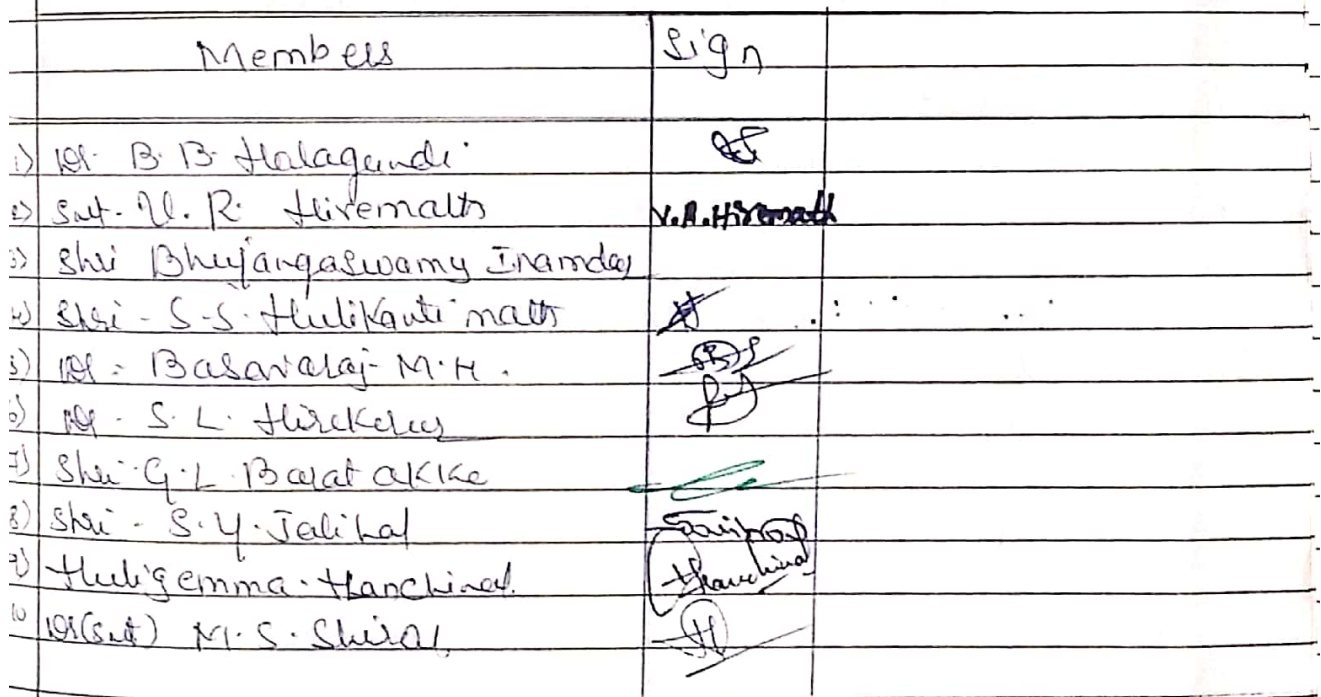 Members Sign
1) Dr. B. B. Halagundi
2) Smt. V. R. Hiremath V.R.Hiremath
3) Shri Bhujangaswamy Inamdar
4) Shri - S.S. Hulikantimath
5) Dr. Basavaraj M.H.
6) Dr. S. L. Hirekerur
7) Shri G.L. Baratakke
8) Shri - S.Y. Jalihal
9) Huligemma Hanchinal Hanchinal
10 Dr(Smt) M.S.